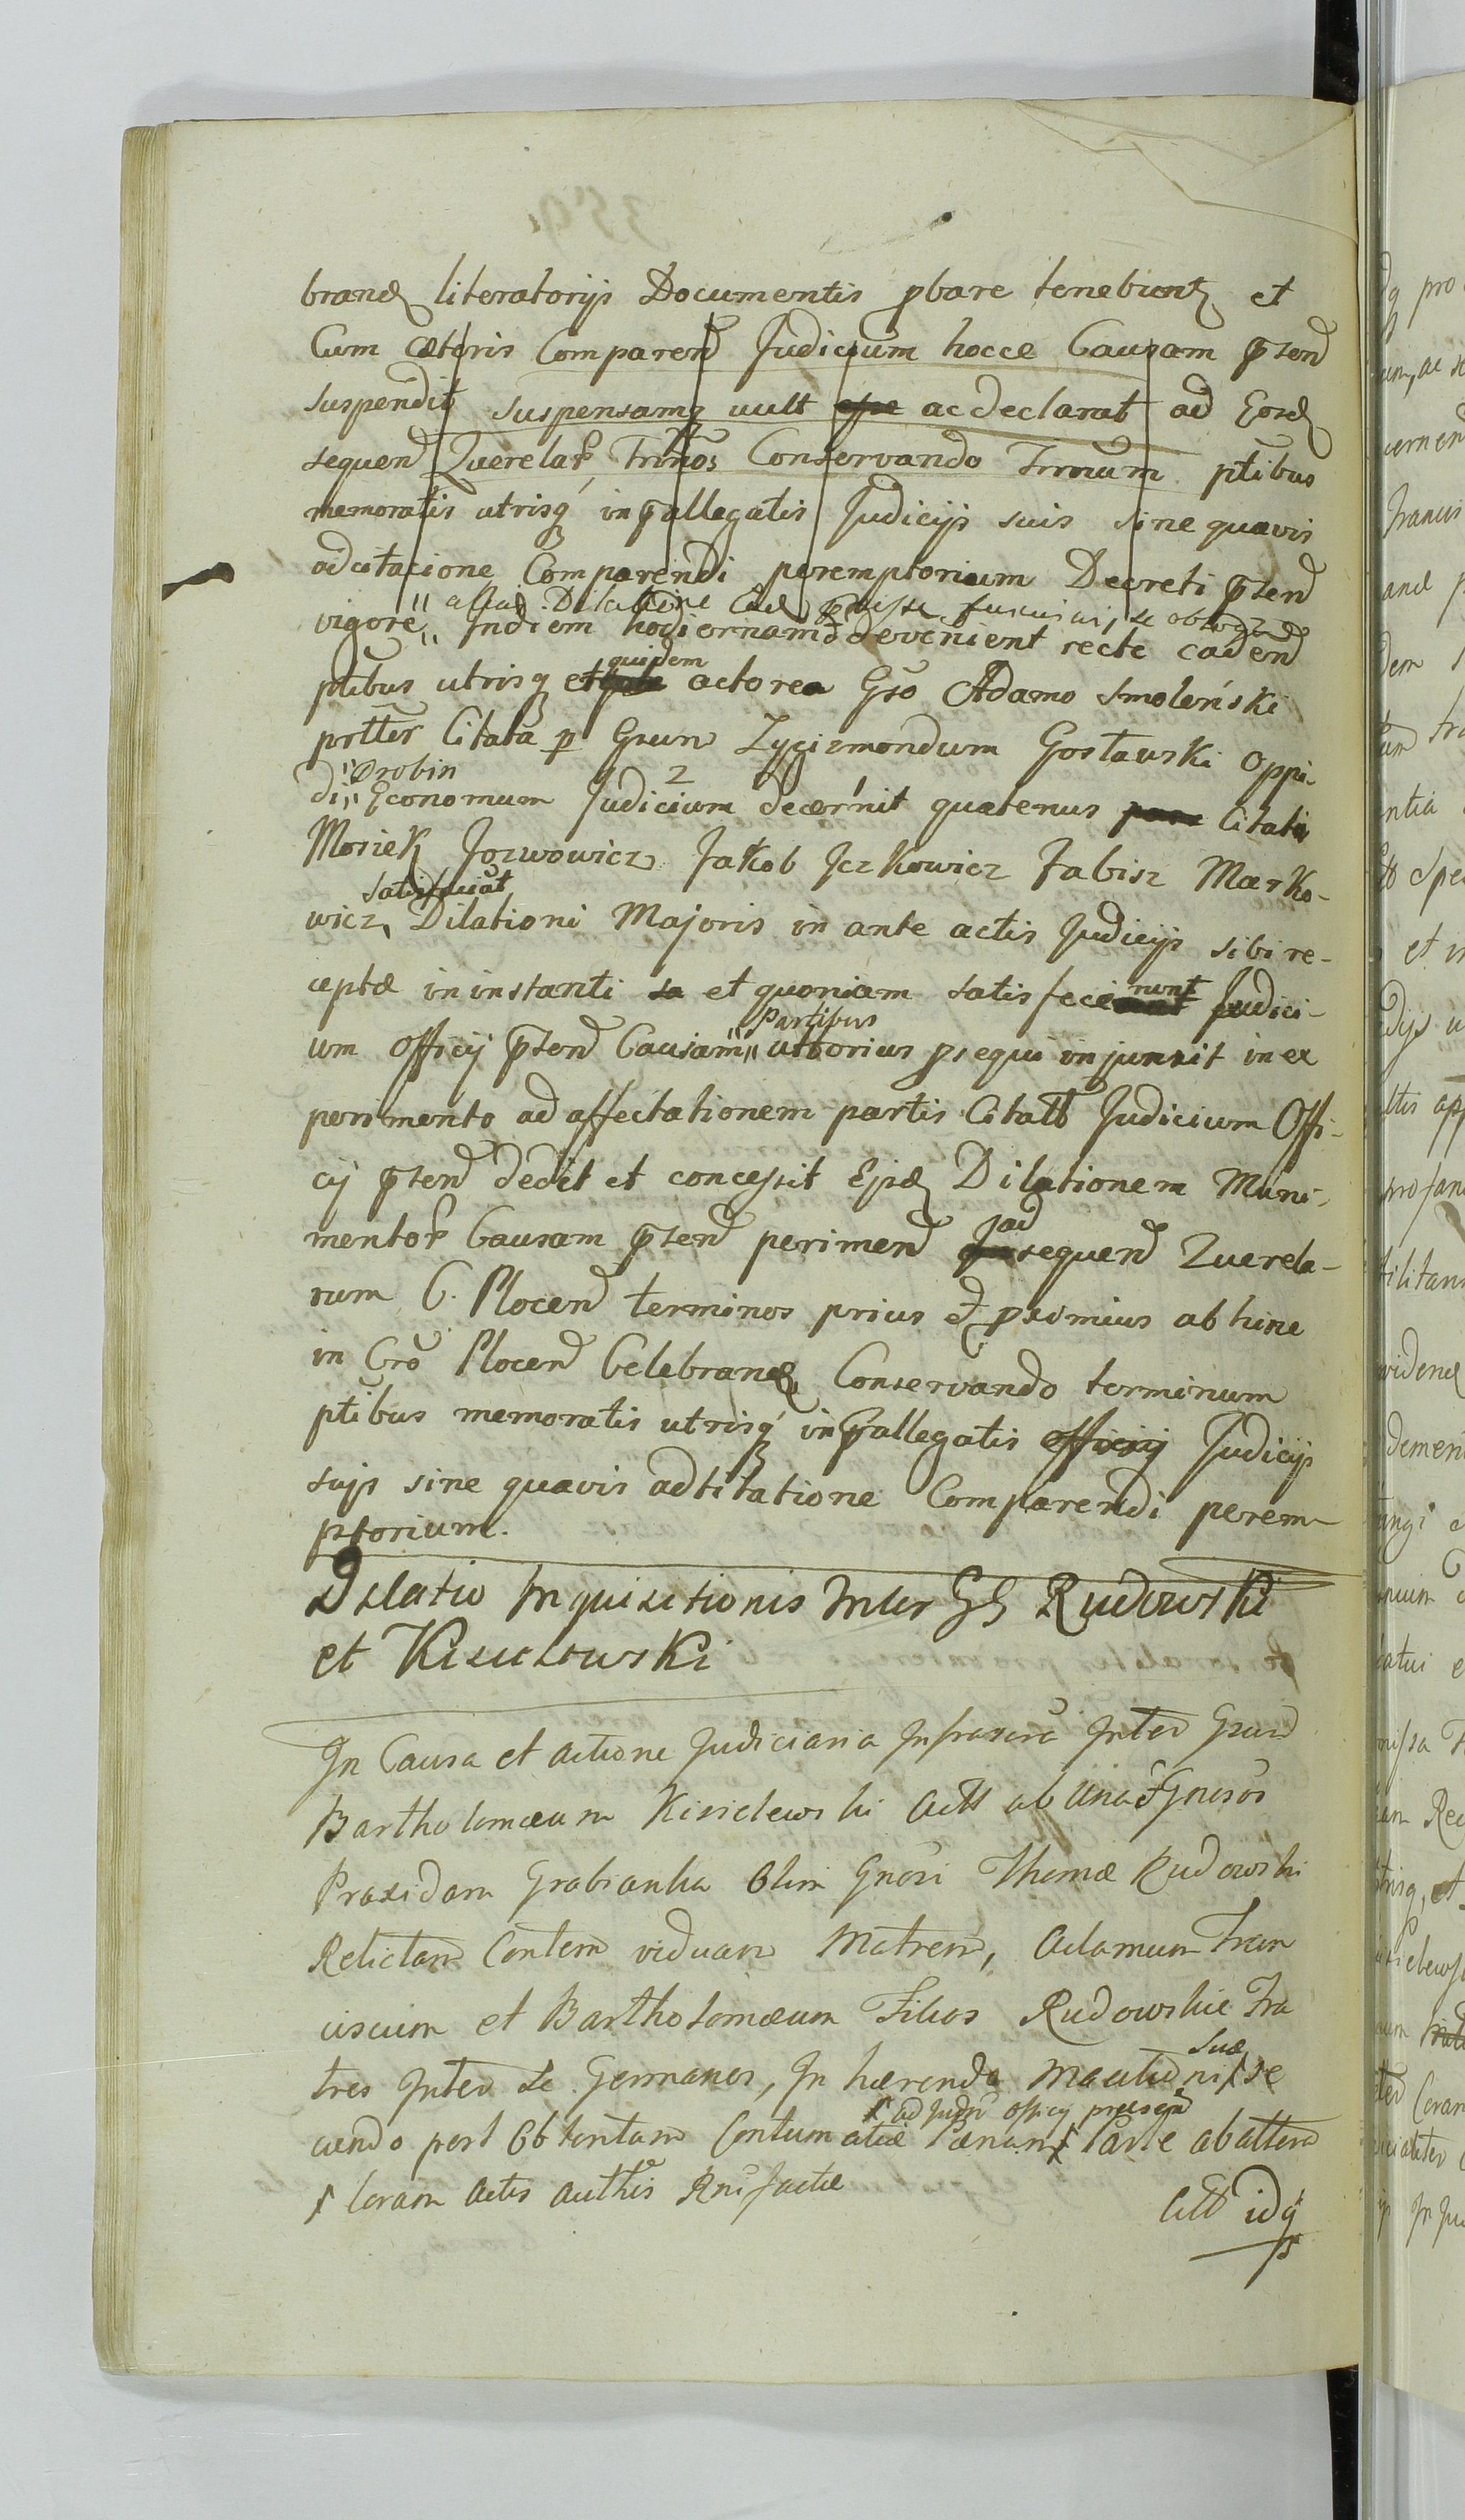 brand literatorijs Documentis pbare tenebunt et
Cum cæteris Comparend Judicium hocce Causam pſend
suspendit suspensamq vult esse ac declarat ad Eosd
sequend Querelar Trmnos Conservando Trmnum ptibus
memoratis utrisq in pallegatis Judicijs suis sine quavis
adcitacione Comparendi peremptorium Decreti pſend
Dilatione
vigore Indiem hodiernam devenient recte cadend
quidem
ptibus utrisq et actorea Gso Adamo Smoleński
prtter Citata p Gsum Zygismondum Gosławski Oppi-
Drobin
di Economum Judicium decernit quatenus Citati
Mosiek Jozwowicz Jakob Jczkowicz Jabisz Marko-
satisfaciat
wicz Dilationi Majoris in ante actis Judicijs sibi re-
ceptæ in instanti et quoniam satis fecerunt Judici-
Partibus
um Officij pſend Causam ulterius psequi injunxit in ex
perimento ad affectationem partis Citatt Judicium Offi-
cij pſend dedit et concessit Ejsd Dilationem Muni-
ad
mentor Causam pſend perimend sequend Querela-
rum C. Plocend terminos prius et pxomius ab hinc
in Cro Plocend Celebrand Conservando terminum
ptibus memoratis utrisq in pallegatis officij Judicijs
suijs sine quavis adcitatione Comparendi perem-
ptorium.
Dilatio Inquisitionis Inter GG Rudowski
et Kisielowski
In Causa et actione Judiciaria Infrascra Inter Gsum
Bartholomæum Kisielewski Actt ab Una et Gnosos
Praxidam Grabianka Olim Gnosi Thomæ Rudowski
Relictam Contem viduam Matrem, Adamum Fran
ciscum et Bartholomæum Filios Rudowskie Fra
suæ
tres Inter se Germanos, In hærendo
ad Judm officij præsend
cendo post Obtentam Contumatiæ Pænam Parte ab altera
Coram Actis Authis Rni factæ
Citt idq